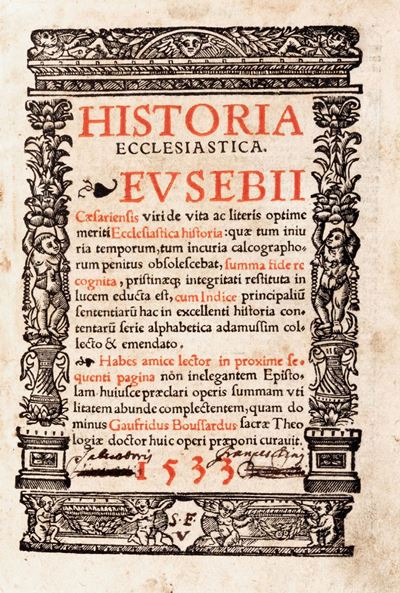 HISTORIA
ECCLESIASTICA.
EVSEBII
Cæsariensis viri de vita ac literis optime
meriti Ecclesiastica historia: quæ tum iniu
ria temporum, tum incuria calcographo-
rum penitus obsolescebat, summa fide re
cognita, pristinæq; integritati restituta in
lucem educta est, cum Indice principaliū
sententiarū hac in excellenti historia con-
tentarū serie alphabetica adamussim col-
lecto & emendato.
Habes amice lector in proxime se-
quenti pagina nōn inelegantem Episto-
lam huiusce præclari operis summam vti
litatem abunde complectentem, quam do
minus Gaufridus Boussardus sacræ Theo
logiæ doctor huic operi præponi curavit.
1533
S. F.
V